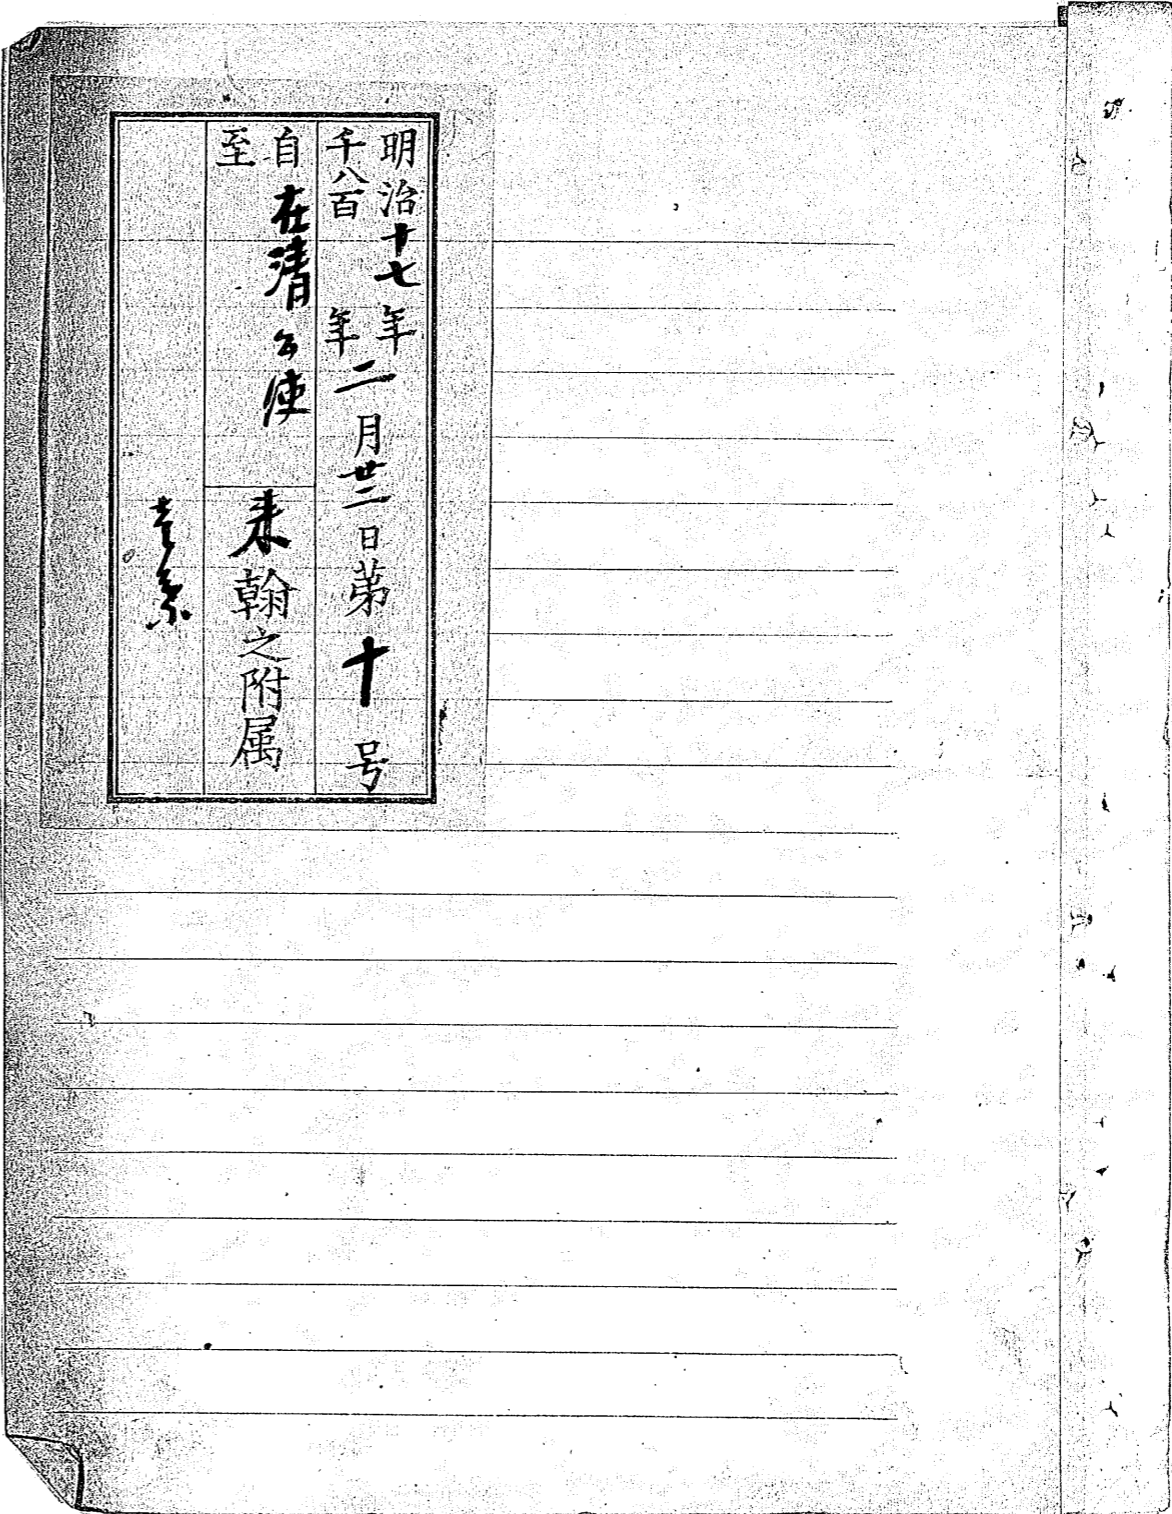 明治十七年
千八百 年
二月廿三日第十号
自 在清公使
至
来翰之附属